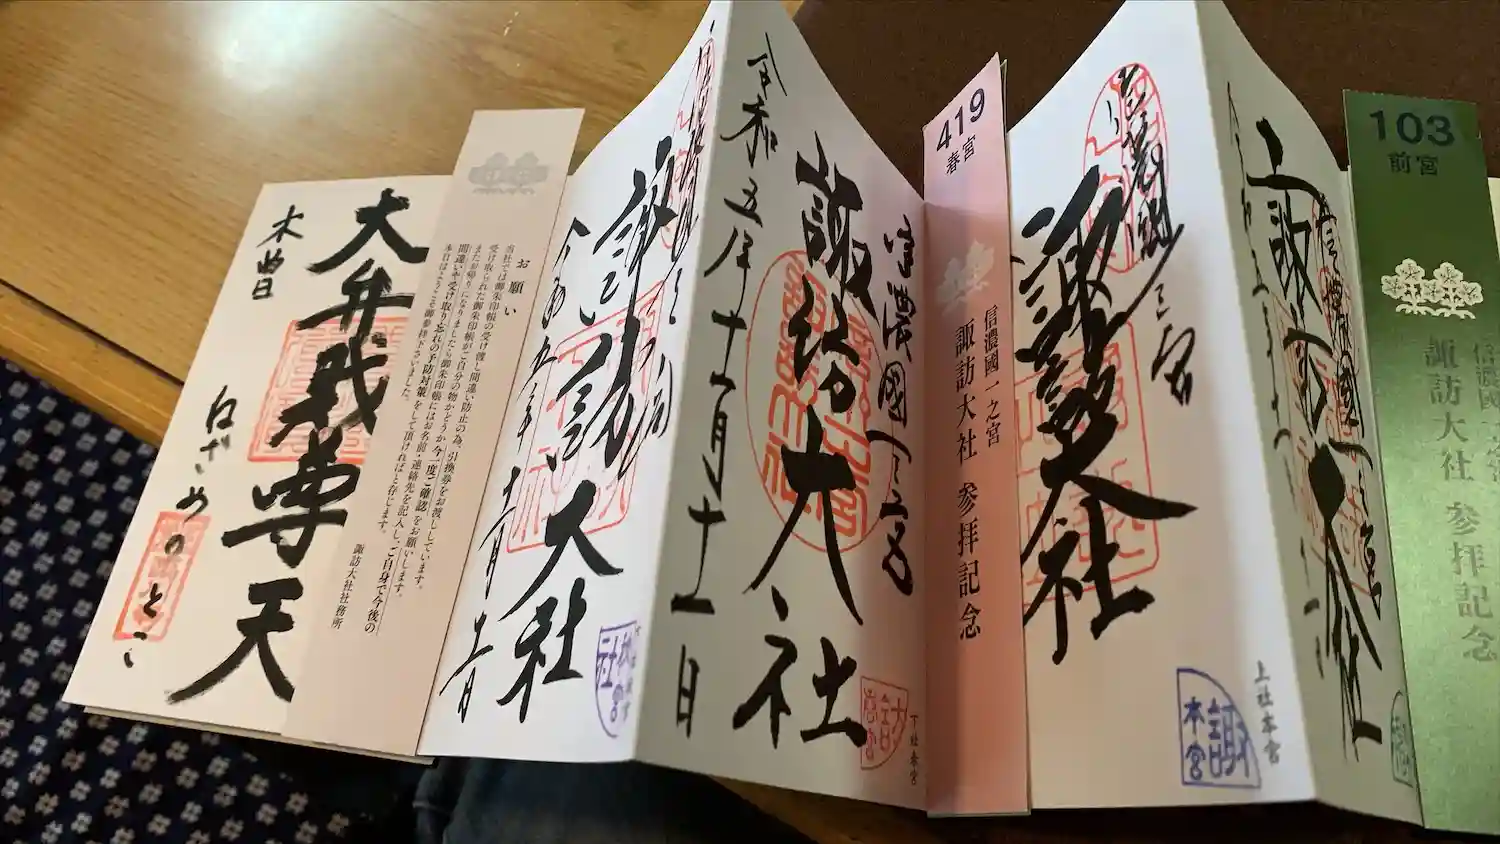 木曽
大弁財尊天
ねざめのとこ
お願い
当社では御朱印帳の受け渡し間違い防止の為、引換券をお渡ししています。
受け取られた御朱印帳がご自分の物かどうか今一度ご確認をお願いします。
またお帰りになりましたら御朱印帳にはお名前・連絡先を記入し、ご自身で今後の
間違いや受け取り忘れの予防対策をして頂ければと存じます。
本日はようこそ御参拝下さいました。
諏訪大社社務所
諏訪大社
秋宮
令和五年十一月十一日
信濃國一之宮
諏訪大社
下社春宮
419
春宮
信濃國一之宮
諏訪大社 参拝記念
信濃國一之宮
諏訪大社
上社本宮
諏
本宮
信濃國一之宮
諏訪大社
103
前宮
信濃國一之宮
諏訪大社 参拝記念